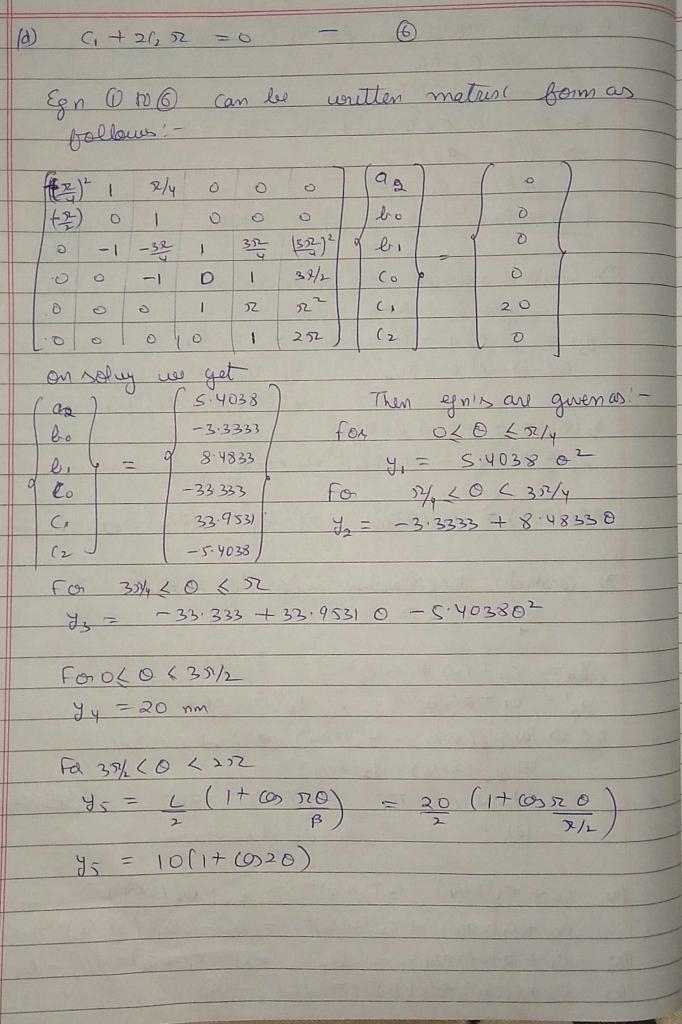 (d) C₁ + 2C₂ π = 0 — ⑥
Eqn ① to ⑥ can be written matrix form as
follows:-
(π/4)² 1 π/4 0 0 0 a₂ 0
(π/2) 0 1 0 0 0 b₀ 0
0 -1 -3π/4 1 3π/4 (3π/4)² b₁ = 0
0 0 -1 0 1 3π/2 C₀ 0
0 0 0 1 π π² C₁ 20
0 0 0 0 1 2π C₂ 0
on solvy we get
a₂ 5.4038
b₀ -3.3333
b₁ = 8.4833
C₀ -33.333
C₁ 33.9531
C₂ -5.4038
Then eqn's are given as:-
for 0 < θ < π/4
y₁ = 5.4038 θ²
For π/4 < θ < 3π/4
y₂ = -3.3333 + 8.4833θ
For 3π/4 < θ < π
y₃ = -33.333 + 33.9531 θ - 5.4038θ²
For 0 < θ < 3π/2
y₄ = 20 mm
For 3π/2 < θ < 2π
y₅ = L/2 (1 + cos πθ/β) = 20/2 (1 + cos π θ/π/2)
y₅ = 10(1 + cos2θ)